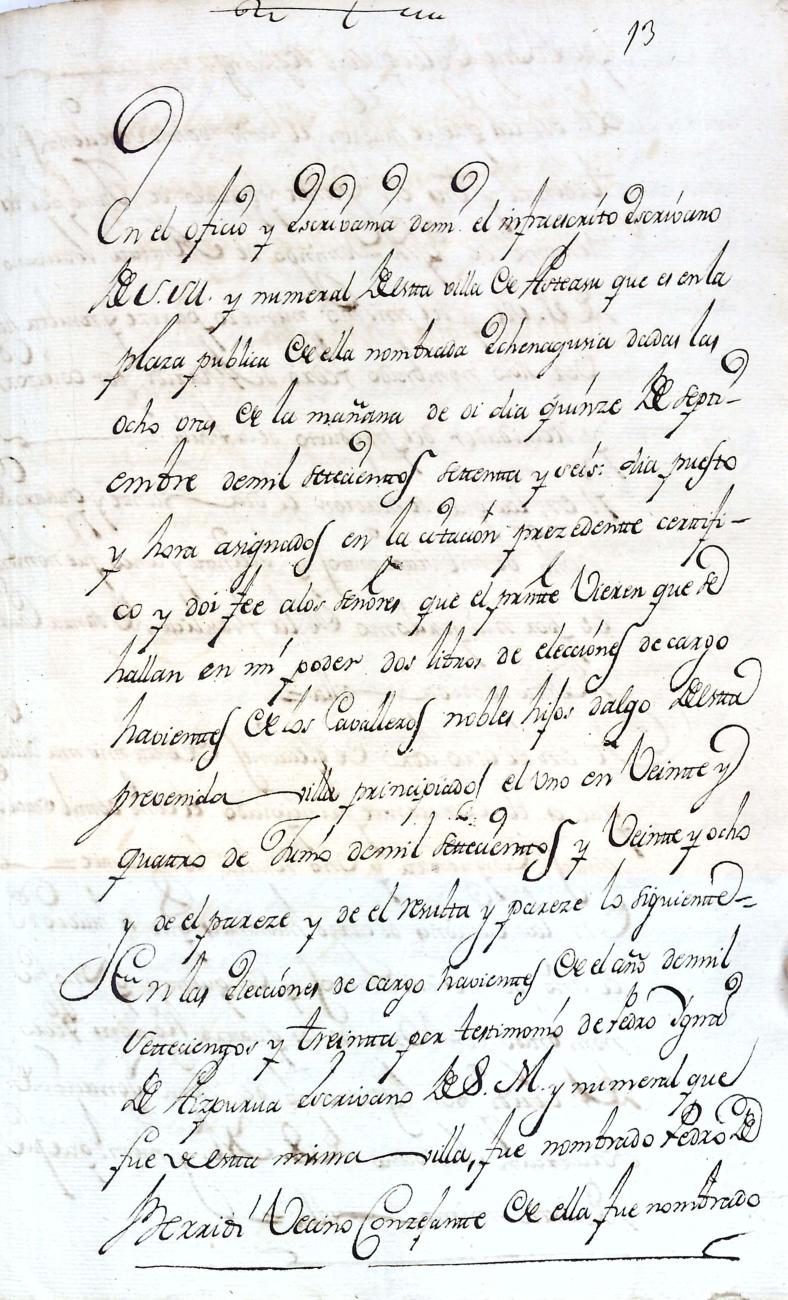 13
En el oficio y escrivania demi el infraescrito Escrivano
De S. M. y numeral De esta villa de Asteasu que es en la
plaza publica de ella nombrada Echenagusia dadas las
ocho oras de la mañana de oi dia quinze De septi-
embre demil setecientos settentta y seis: dia puesto
y hora asignados en la citacion prezedentte certifi-
co y doi fee alos señores que el prntte Vieren que se
hallan en mi poder dos libros de elecciones de cargo
havienttes de los Cavalleros nobles hijos dalgo De estta
prevenida villa principiados el uno en Veintte y
quattro de Junio demil settecienttos y Veintte y ocho
y de el pareze y de el resulta y pareze lo siguientte
En las elecciones de cargo havienttes de el año demil
settecientos y treintta por testimonio de Pedro Ygna
De Aizpurua escrivano De S. M. y numeral que
fue de estta misma villa, fue nombrado Pedro De
Berridi Vecino Conzejantte de ella fue nombrado